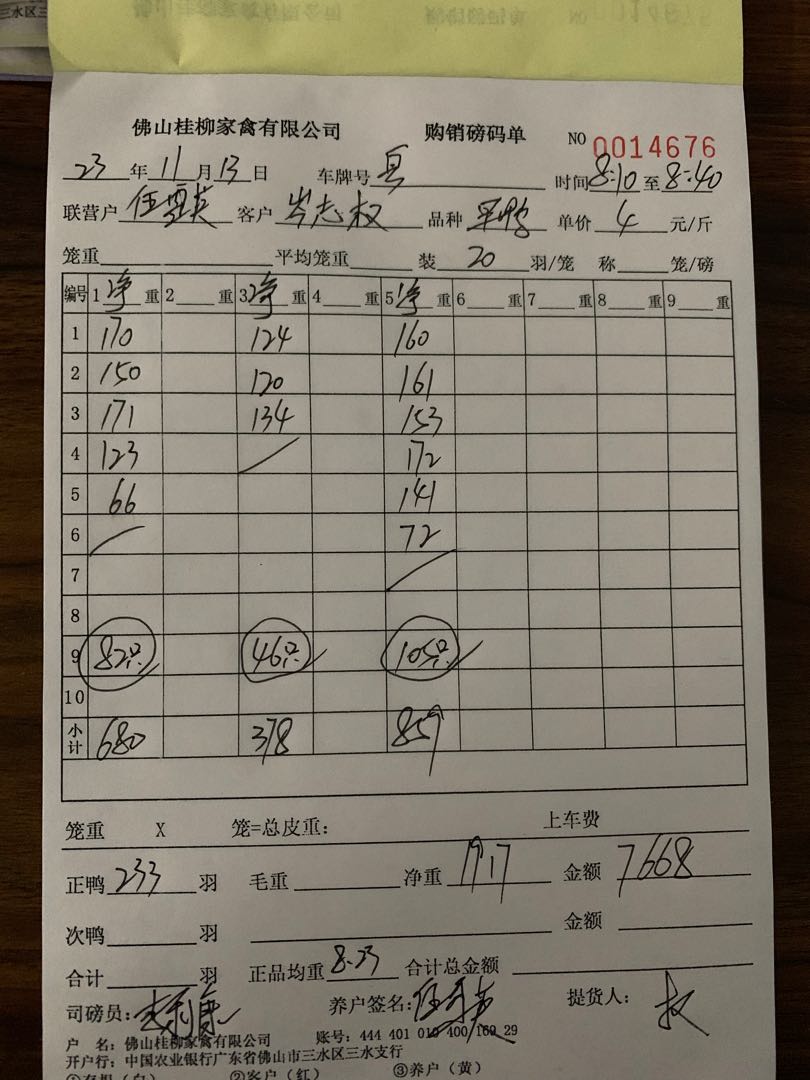 三水区三
佛山桂柳家禽有限公司 购销磅码单 NO 0014676
23 年 11 月 13 日 车牌号 时间 8:10 至 8:40
联营户 客户 岑志权 品种 单价 4 元/斤
笼重 平均笼重 装 20 羽/笼 称 笼/磅
编号 1 净 重 2 重 3 净 重 4 重 5 净 重 6 重 7 重 8 重 9 重
1 170 124 160
2 150 120 161
3 171 134 153
4 123 172
5 66 141
6 72
7
8
9 82只 46只 105只
10
小计 680 378 859
笼重 X 笼=总皮重: 上车费
正鸭 233 羽 毛重 净重 1917 金额 7668
次鸭 羽 金额
合计 羽 正品均重 8.23 合计总金额
司磅员: 养户签名: 提货人: 权
户 名: 佛山桂柳家禽有限公司 账号: 444 401 010 400 160 29
开户行: 中国农业银行广东省佛山市三水区三水支行
①存根(白) ②客户(红) ③养户(黄)